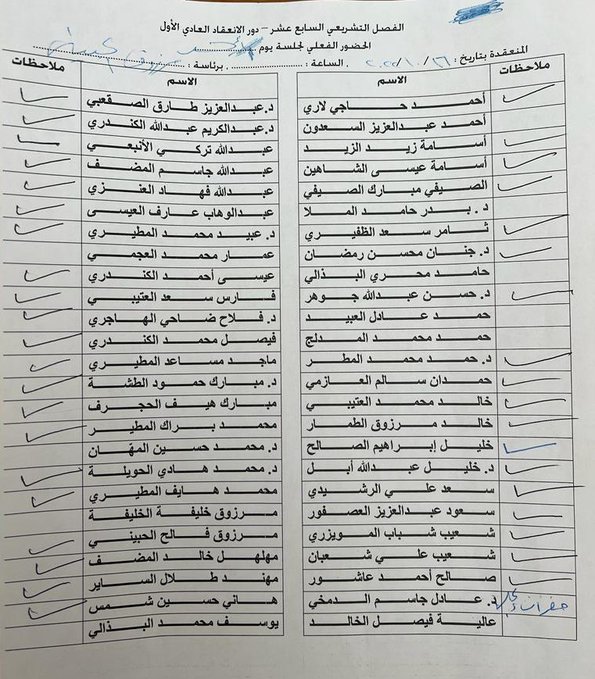 الفصل التشريعي السابع عشر – دور الانعقاد العادي الأول
الحضور الفعلي لجلسة يوم
المنعقدة بتاريخ: ٢٠٢٢/١٠/٢٦ . الساعة: . برئاسة: أحمد
ملاحظات الاسم
أحمد حاجي لاري
أحمد عبدالعزيز السعدون
أسامة زيد الزيد
أسامة عيسى الشاهين
الصيفي مبارك الصيفي
د. بدر حامد الملا
ثامر سعد الظفيري
د. جنان محسن رمضان
حامد محري البذالي
د. حسن عبدالله جوهر
حمد عادل العبيد
حمد محمد المدلج
د. حمد محمد المطر
حمدان سالم العازمي
خالد محمد العتيبي
خالد مرزوق الطمار
خليل إبراهيم الصالح
د. خليل عبدالله أبل
سعد علي الرشيدي
سعود عبدالعزيز العصفور
شعيب شباب المويزري
شعيب علي شعبان
صالح أحمد عاشور
د. عادل جاسم الدمخي
عالية فيصل الخالد
الاسم ملاحظات
د. عبدالعزيز طارق الصقعبي
د. عبدالكريم عبدالله الكندري
عبدالله تركي الأنبعي
عبدالله جاسم المضف
عبدالله فهاد العنزي
عبدالوهاب عارف العيسى
د. عبيد محمد المطيري
عمار محمد العجمي
عيسى أحمد الكندري
فارس سعد العتيبي
د. فلاح ضاحي الهاجري
فيصل محمد الكندري
ماجد مساعد المطيري
د. مبارك حمود الطشة
مبارك هيف الحجرف
محمد براك المطير
د. محمد حسين المهان
د. محمد هادي الحويلة
محمد هايف المطيري
مرزوق خليفة الخليفة
مرزوق فالح الحبيني
مهلهل خالد المضف
مهند طلال الساير
هاني حسين شمس
يوسف محمد البذالي